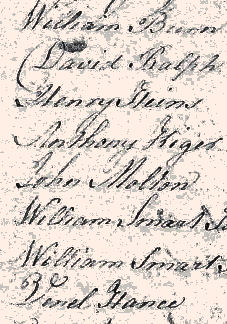 William Burn
David Ralph
Henry Heins
Anthony Kiger
John Molton
William Smart
William Smart
Hance